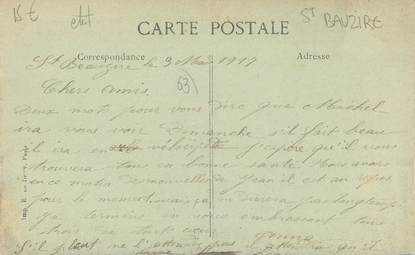 15 €
etat
ST BAUZIRE
CARTE POSTALE
Correspondance
Adresse
St Beauzire le 3 Mai 1917
63
Chers amis.
Deux mots pour vous dire que Michel
ira vous voir Dimanche s'il fait beau
il ira en vélo j'espère qu'il vous
trouvera tous en bonne santé. Nous avons
eu ce matin des nouvelles de Jean il est au repos
pour le moment mais ça durera pas longtemps
je termine en vous embrassant tous
trois de tout
S'il pleut ne l'attendez pas
Imp. E. Le Paris